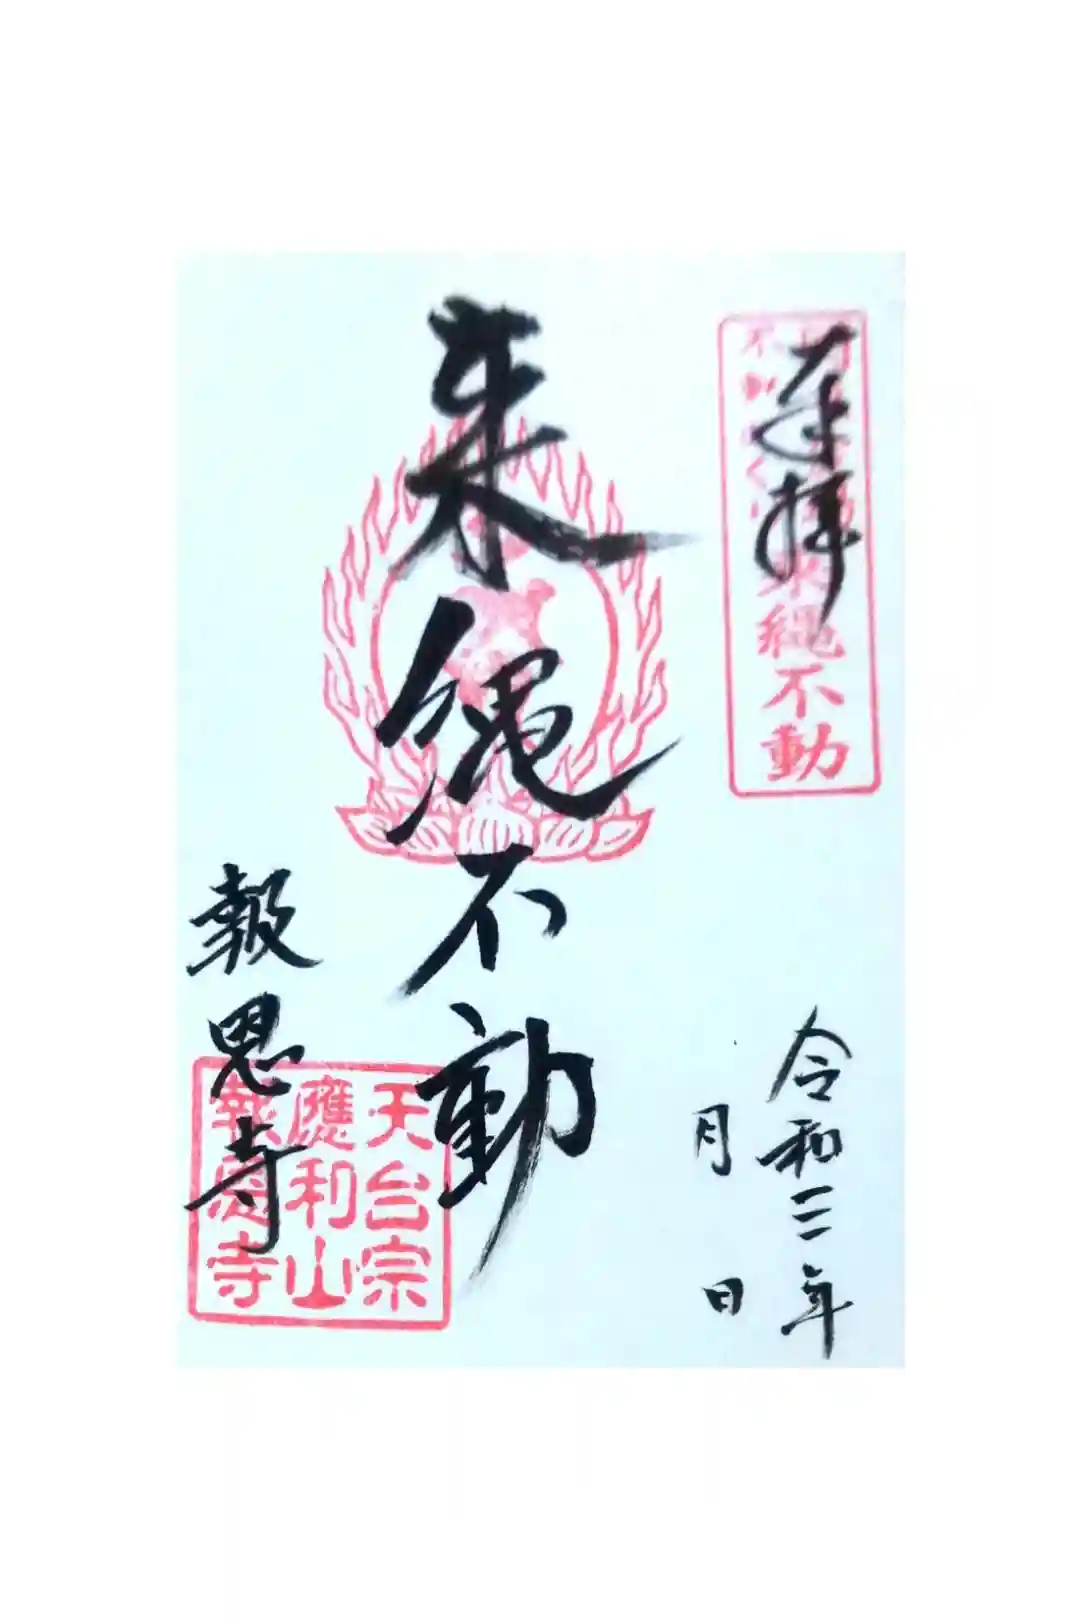 奉拝
朱縄不動
令和三年
月 日
朱縄不動
報恩寺
天台宗
應和山
報恩寺